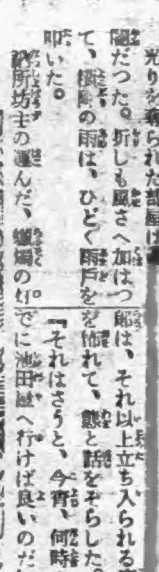 光りを奪られた部屋は
闇だつた。折しも風さへ加はつ
て、横降の雨は、ひどく雨戸を
叩いた。
納所坊主の運んだ、蠟燭の灯。
郎は、それ以上立ち入られる
を怖れて、態と話をそらした。
『それはさうと、今宵、何時
でに池田屋へ行けば良いのだ